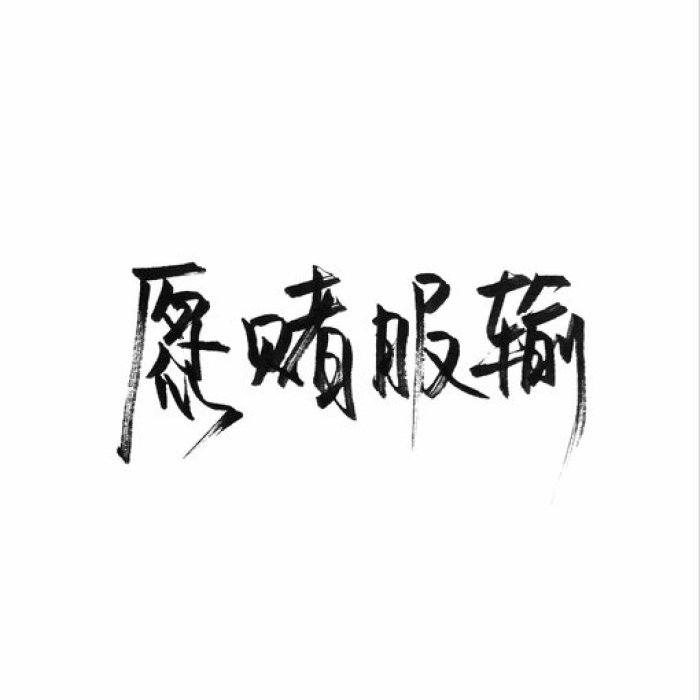 愿赌服输